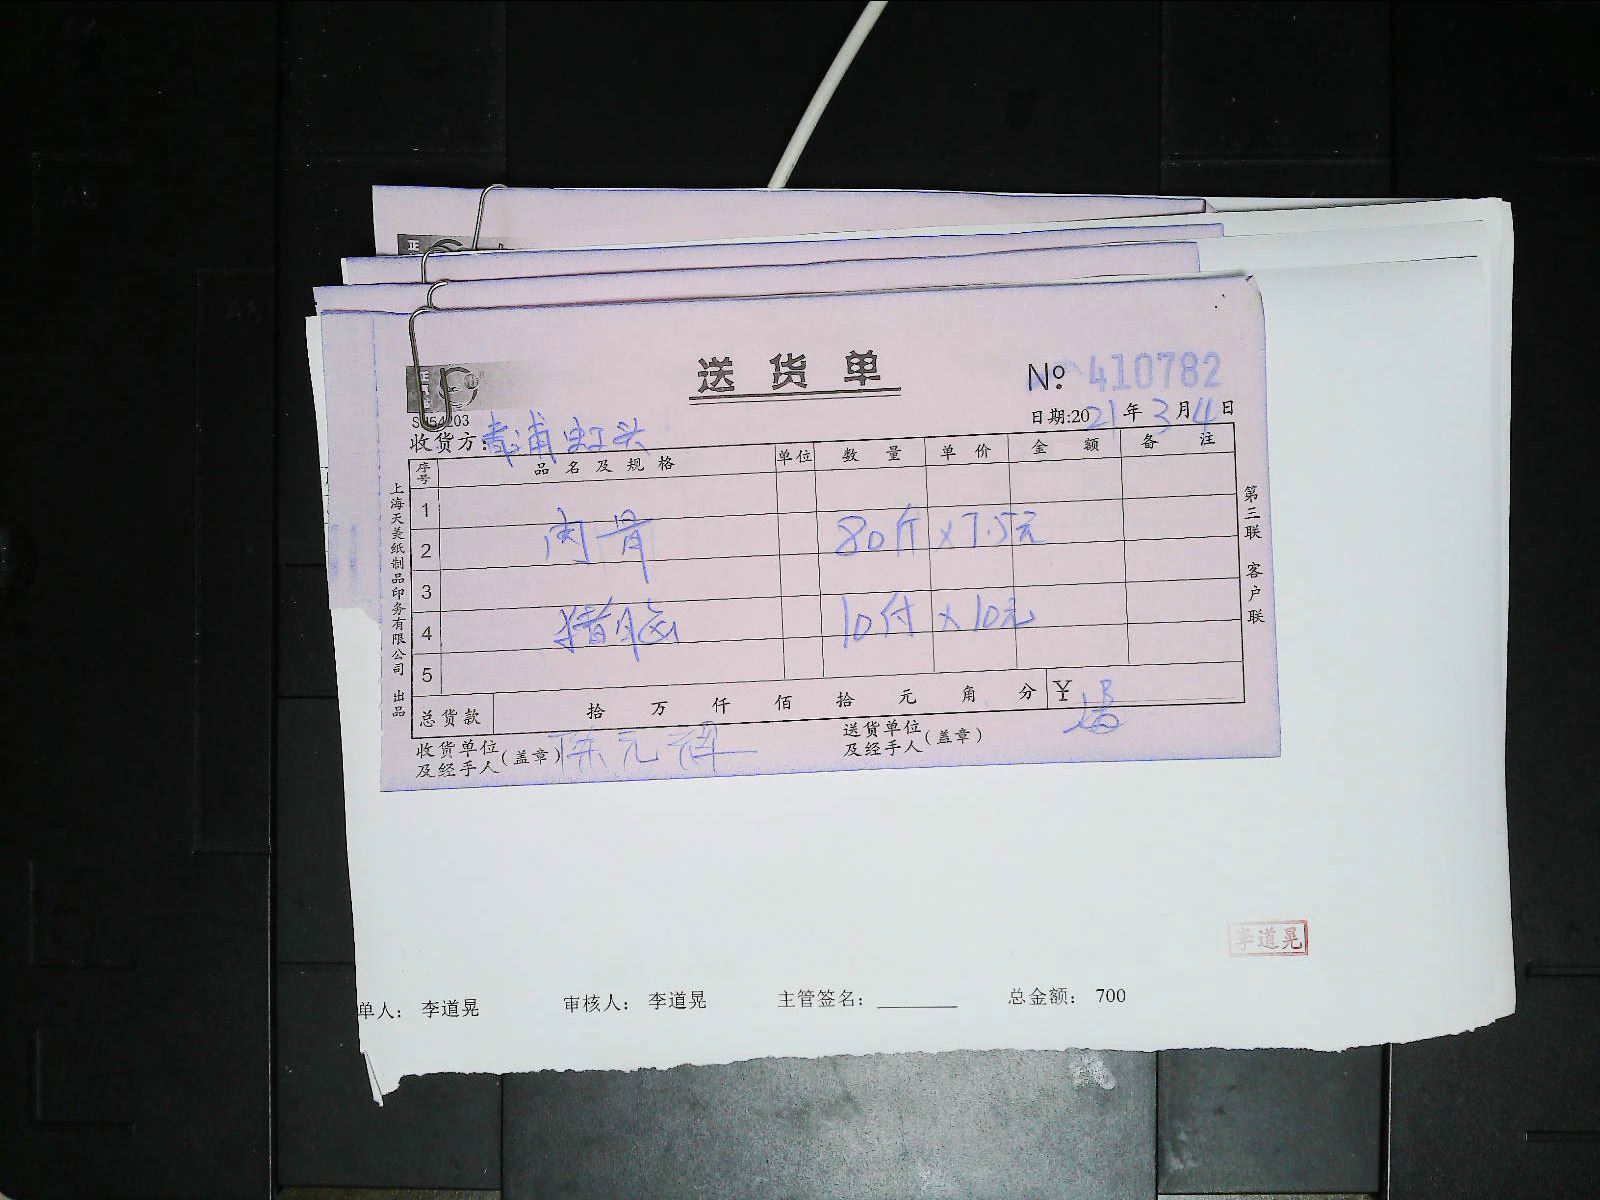 正
送货单
№ 410782
日期:2021年3月4日
收货方:青浦虹头
序号 品名及规格 单位 数量 单价 金额 备注
1
2 肉骨 80斤 × 7.5元
3
4 猪脑 10付 × 10元
5
总货款 拾 万 仟 佰 拾 元 角 分 ¥
收货单位及经手人(盖章) 陈元
送货单位及经手人(盖章)
上海天美纸制品印务有限公司 出品
第三联 客户联
李道晃
单人: 李道晃 审核人: 李道晃 主管签名: ________ 总金额: 700